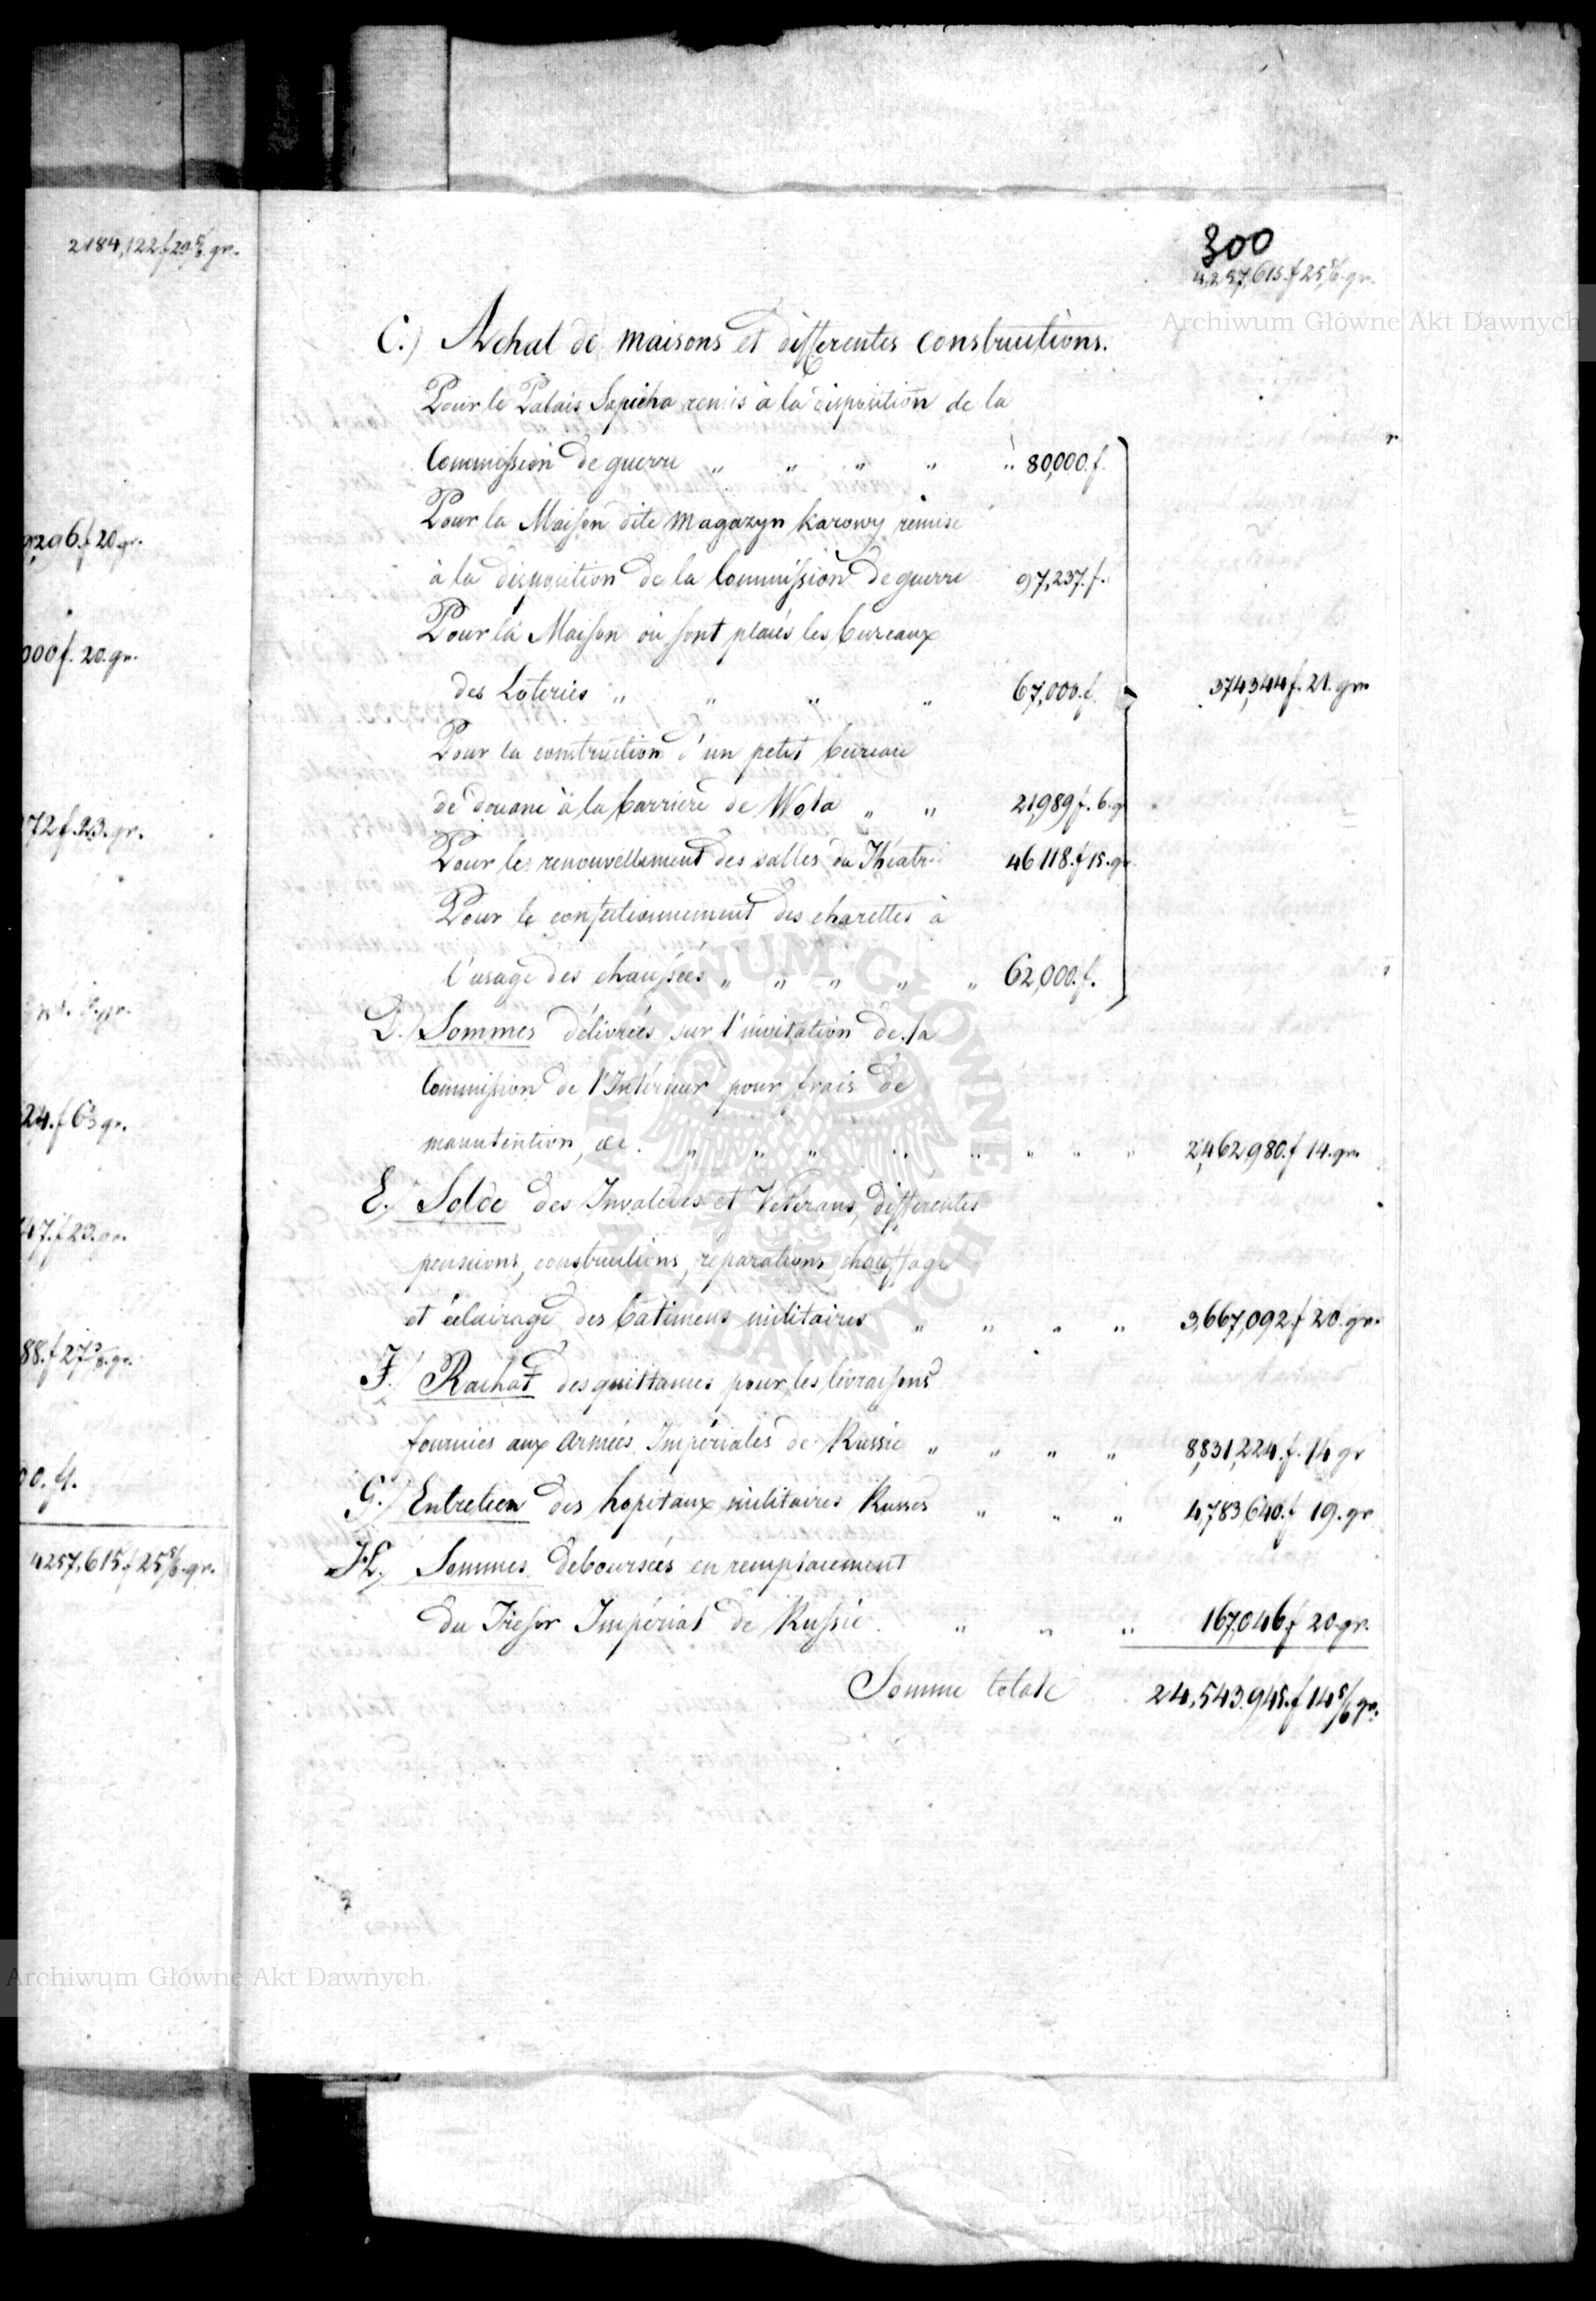 2184,122.f 29 5/6 gr.
9296.f 20 gr.
000f. 20. gr.
72f. 23. gr.
24.f 63 gr.
47.f 23. gr.
88.f 27 gr.
00. f.
4257,615f 25 5/6 gr.
300
4,257,615.f 25 5/6 gr.
Archiwum Główne Akt Dawnych
C.) Achat de maisons et differentes constructions.
Pour le Palais Sapieha remis à la disposition de la
Commission de guerre „ „ „ „ „ 80,000.f.
Pour la Maison dite Magazyn Karowy remise
à la disposition de la Commission de guerre 97,237.f.
Pour la Maison où sont placés les bureaux
des Loteries „ „ „ „ 67,000.f. 374,344f. 21. gr.
Pour la construction d'un petit bureau
de douane à la barriere de Wola „ „ 21,989f. 6. gr
Pour le renouvellement des salles du Théatre 46118.f 15. gr.
Pour le confectionnement des charettes à
l'usage des chaussées „ „ „ „ „ 62,000.f.
D.) Sommes délivrées sur l'invitation de la
Commission de l'Intérieur pour frais de
manutention, &c. „ „ „ „ „ „ „ „ 2,462,980.f 14. gr.
E.) Solde des Invalides et Veterans, differentes
pensions, constructions, réparations, chauffage
et éclairage des batimens militaires „ „ „ „ 3,667,092.f 20. gr.
F.) Rachat des quittances pour les livraisons
fournies aux armées Impériales de Russie „ „ „ „ 8,831,224.f. 14 gr
G.) Entretien des hopitaux militaires Russes „ „ „ 4,783,640.f 19. gr
H.) Sommes deboursées en remplacement
du Tresor Impérial de Russie „ „ „ 167,046f 20. gr.
Somme totale 24,543,945.f 14 5/6 gr.
ARCHIWUM GŁÓWNE AKT DAWNYCH
Archiwum Główne Akt Dawnych.